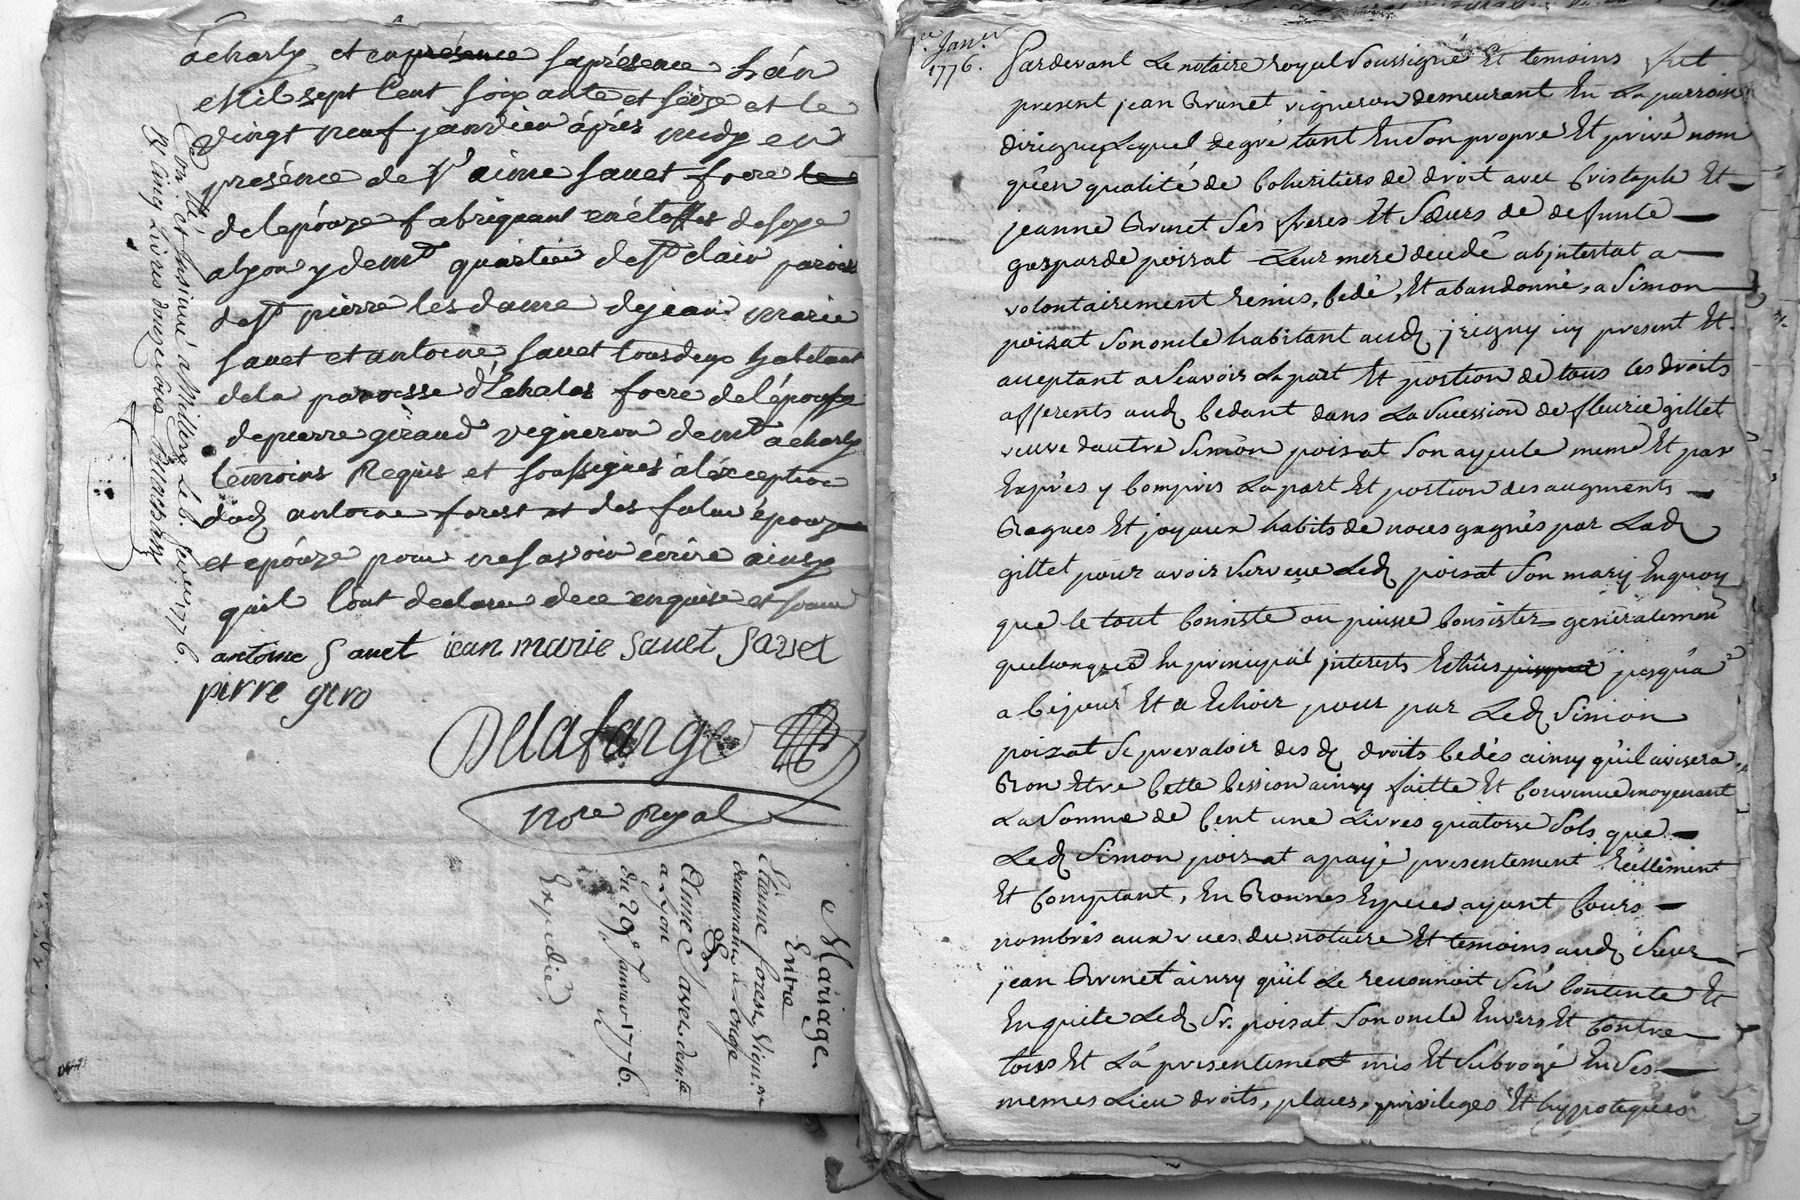 acharly et en presence sa présence Lán
Mil sept Cent soixante et seize et le
vingt neuf janvier aprés midy en
presénce de Sr aimé savet frere le
delepóuze fabriquant en étoffes de soye
alyon y demt quartier de st clair paroisse
de st pierre les dame de jean marie
savet et antoine savet tous deux habitant
de la paroisse d'Echalas frere de lépouse
de pierre géraud vigneron demt á charly
témoins Requis et soussignés á léxception
dud antoine forest et des futur epoux
et epóuze pour ne savoir écrire ainsy
quil lont declaré de ce enquise et somm
antoine Savet jean marie savet Savet
pirre gero
Delafarge
nore Royal
Conllé et insinué a Millery le 6. fevrier 1776.
R. cinq livres douze sols
Mariage.
Entre
Etienne forest, Vigneron
demeurant à
&
Anne Savet demte
a Lyon
du 29e Janvier 1776.
Expedié
1er Janer
1776.
Pardevant Le notaire royal soussigné Et temoins fut
present jean Brunet vigneron demeurant En La parroisse
dirigny Lequel de gré tant En son propre Et privé nom
qu'en qualité de Coheritiers de droit avec Cristophe Et
jeanne Brunet ses freres Et sœurs de defunte
gasparde poizat Leur mere decedé abjntestat a
volontairement remis, Cedé, Et abandonné, a Simon
poizat son oncle habitant aud jrigny icy present Et
acceptant a scavoir La part Et portion de tous les droits
afferents aud Cedant dans La sucession de fleurie gillet
veuve dautre Simon poizat son ayeule meme Et par
Exprès y Compris La part Et portion des augments
Bagues Et joyaux habits de noces gagnés par Lad
gillet pour avoir surveçue Led poizat son mary En quoy
que le tout Consiste ou puisse Consister generalement
quelconques En principal jnterests Echûs jusqua jusqu'a
a Cejour Et a Echoir pour par Led Simon
poizat se prevaloir des d droits Cedés ainsy qu'il avisera
Bon Etre Cette Cession ainsy faitte Et Convenue moyenant
La somme de Cent une Livres quatorze sols que
Led Simon poizat a payé presentement Réellement
Et Comptant, En Bonnes Especes ayant Cours
nombrés aux vues du notaire Et temoins aud sieur
jean Brunet ainsy qu'il Le reconnoit s'en Contente Et
En quite Led Sr. poizat son oncle Envers Et Contre
tous Et L'a presentement mis Et subrogé En ses
memes Lieu droits, places, privileges Et hypoteques